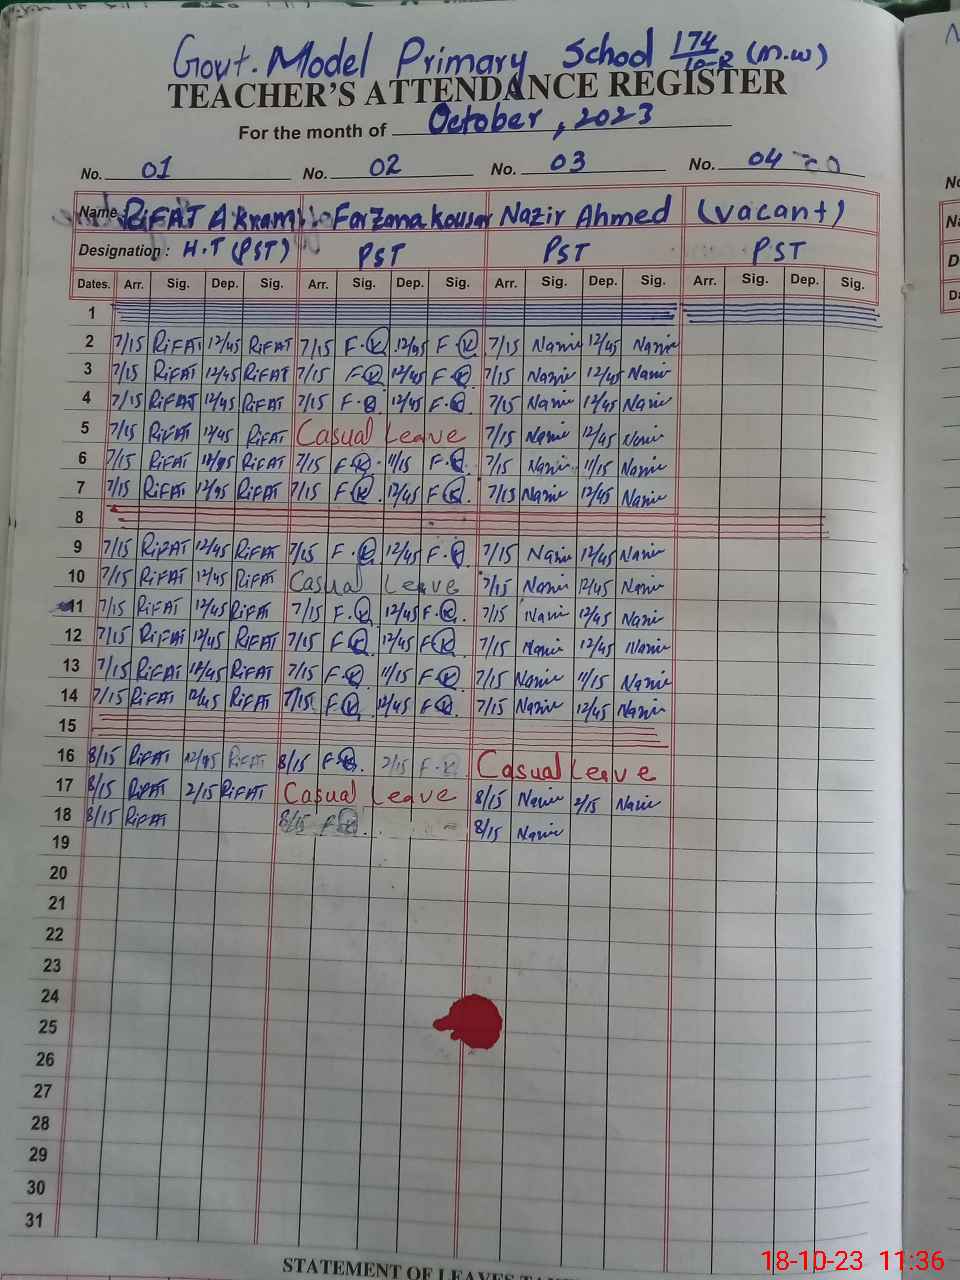 Govt. Model Primary School 174/10-R (M.W)
TEACHER'S ATTENDANCE REGISTER
For the month of October, 2023
No. 01 No. 02 No. 03 No. 04
Name RiFAT Akram Farzana Kousar Nazir Ahmed (vacant)
Designation : H.T (PST) PST PST PST
Dates. Arr. Sig. Dep. Sig. Arr. Sig. Dep. Sig. Arr. Sig. Dep. Sig. Arr. Sig. Dep. Sig.
1
2 7/15 RiFAT 12/45 RiFAT 7/15 F.K 12/45 F K 7/15 Nazir 12/45 Nazir
3 7/15 RiFAT 12/45 RiFAT 7/15 F K 12/45 F K 7/15 Nazir 12/45 Nazir
4 7/15 RiFAT 12/45 RiFAT 7/15 F.K 12/45 F.K 7/15 Nazir 12/45 Nazir
5 7/15 RiFAT 12/45 RiFAT Casual Leave 7/15 Nazir 12/45 Nazir
6 7/15 RiFAT 12/45 RiFAT 7/15 F K 11/15 F.K 7/15 Nazir 11/15 Nazir
7 7/15 RiFAT 12/45 RiFAT 7/15 F K 12/45 F K 7/15 Nazir 12/45 Nazir
8
9 7/15 RiFAT 12/45 RiFAT 7/15 F.K 12/45 F.K 7/15 Nazir 12/45 Nazir
10 7/15 RiFAT 12/45 RiFAT Casual Leave 7/15 Nazir 12/45 Nazir
11 7/15 RiFAT 12/45 RiFAT 7/15 F.K 12/45 F.K 7/15 Nazir 12/45 Nazir
12 7/15 RiFAT 12/45 RiFAT 7/15 F K 12/45 F K 7/15 Nazir 12/45 Nazir
13 7/15 RiFAT 12/45 RiFAT 7/15 F.K 11/15 F K 7/15 Nazir 11/15 Nazir
14 7/15 RiFAT 12/45 RiFAT 7/15 F K 12/45 F K 7/15 Nazir 12/45 Nazir
15
16 8/15 RiFAT 12/45 RiFAT 8/15 F K 2/15 F.K Casual Leave
17 8/15 RiFAT 2/15 RiFAT Casual Leave 8/15 Nazir 2/15 Nazir
18 8/15 RiFAT 8/15 F K 8/15 Nazir
19
20
21
22
23
24
25
26
27
28
29
30
31
STATEMENT OF LEAVES
18-10-23 11:36